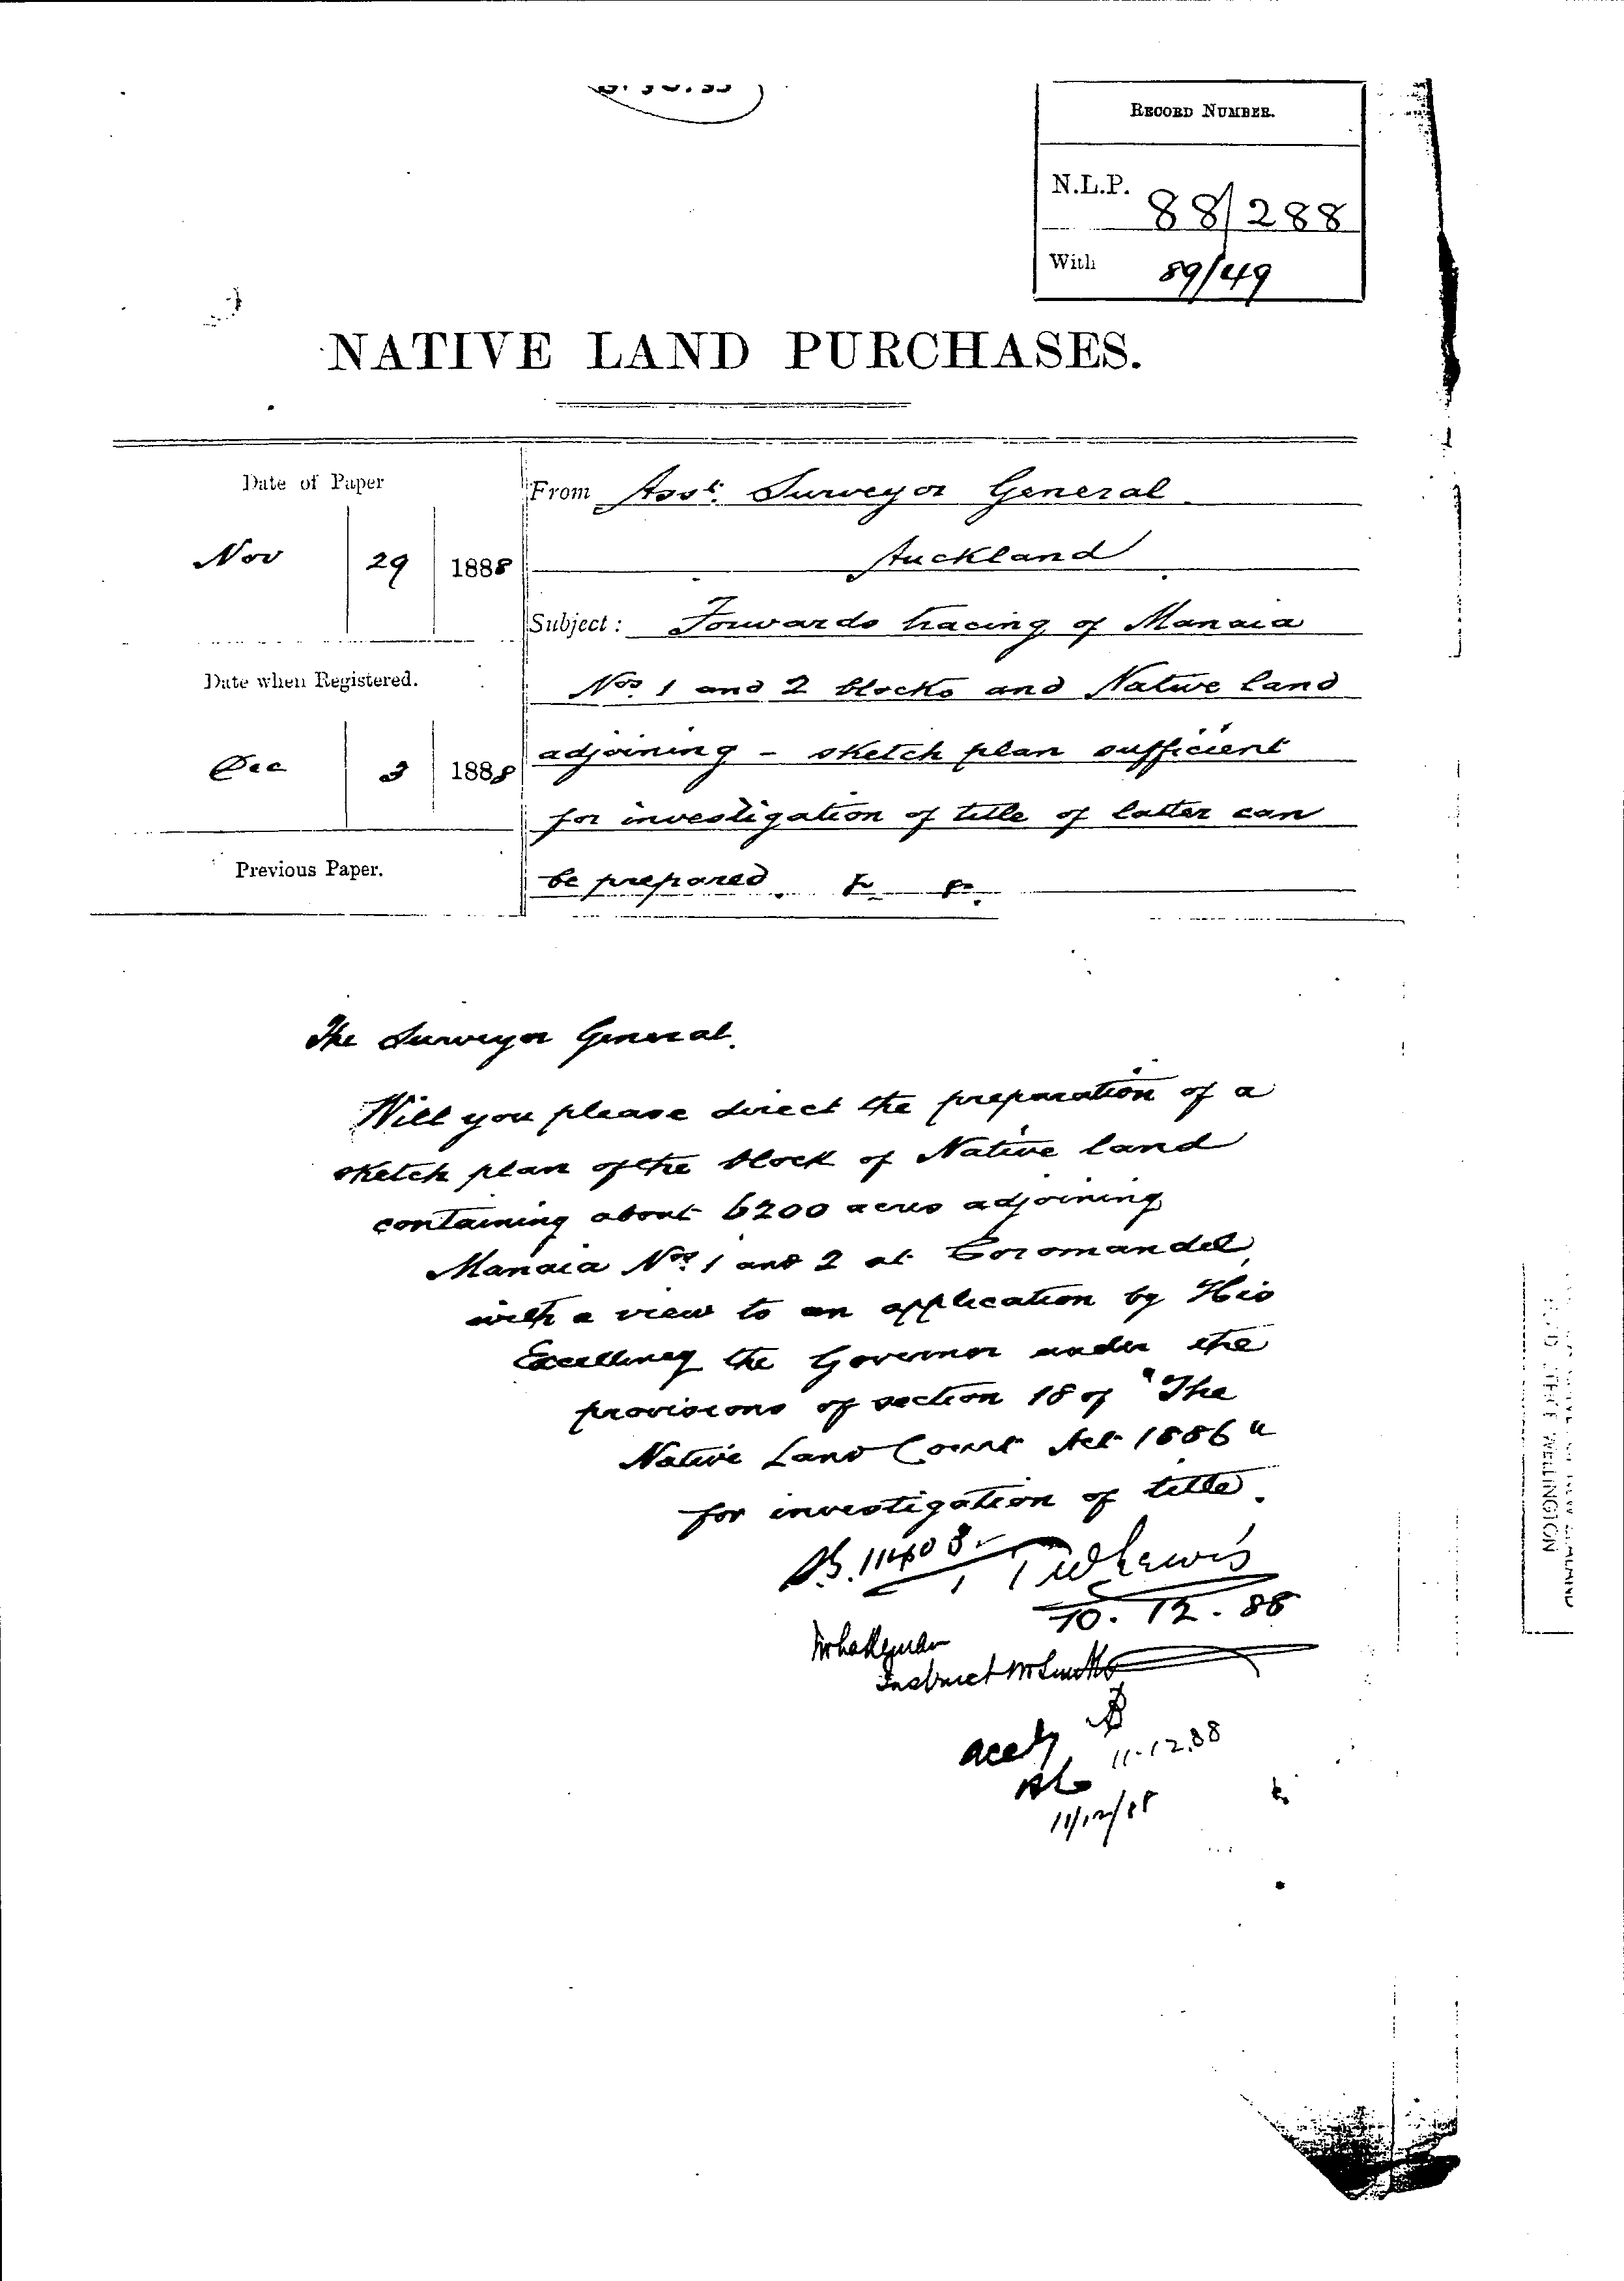 RECORD NUMBER.
N.L.P. 88/288
With 89/49
NATIVE LAND PURCHASES.
Date of Paper
Nov 29 1888
Date when Registered.
Dec 3 1888
Previous Paper.
From Asst. Surveyor General
Auckland
Subject: Forwards tracing of Manaia
Nos. 1 and 2 blocks and Native land
adjoining - sketch plan sufficient
for investigation of title of latter can
be prepared. &c &c.
The Surveyor General.
Will you please direct the preparation of a
sketch plan of the block of Native land
containing about 6200 acres adjoining
Manaia Nos. 1 and 2 at Coromandel,
with a view to an application by His
Excellency the Governor under the
provisions of section 18 of "The
Native Land Court Act 1886"
for investigation of title.
TWLewis
10.12.88
Instruct Mr Smith
11.12.88
11/12/88
WELLINGTON